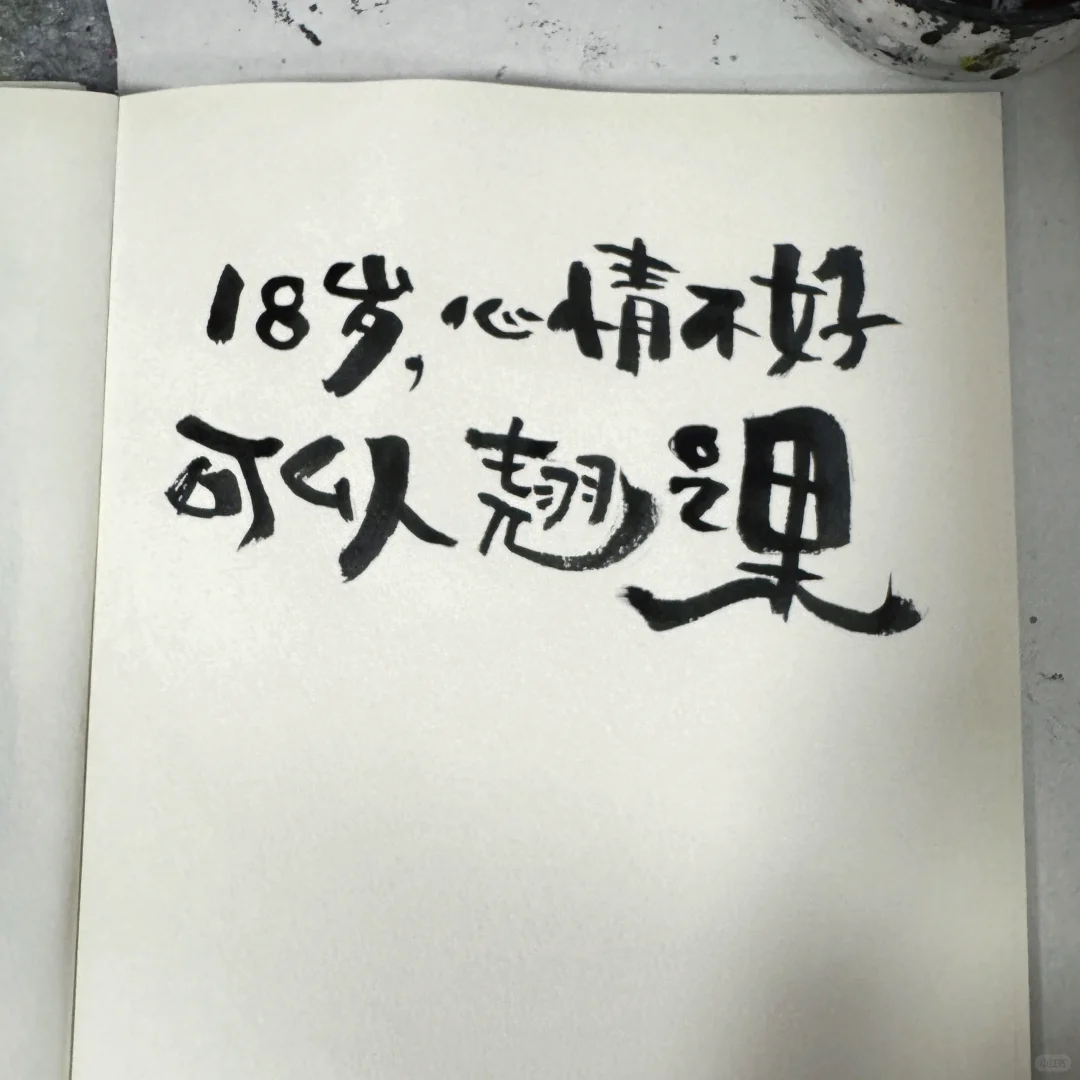 18岁,心情不好
可以翘课